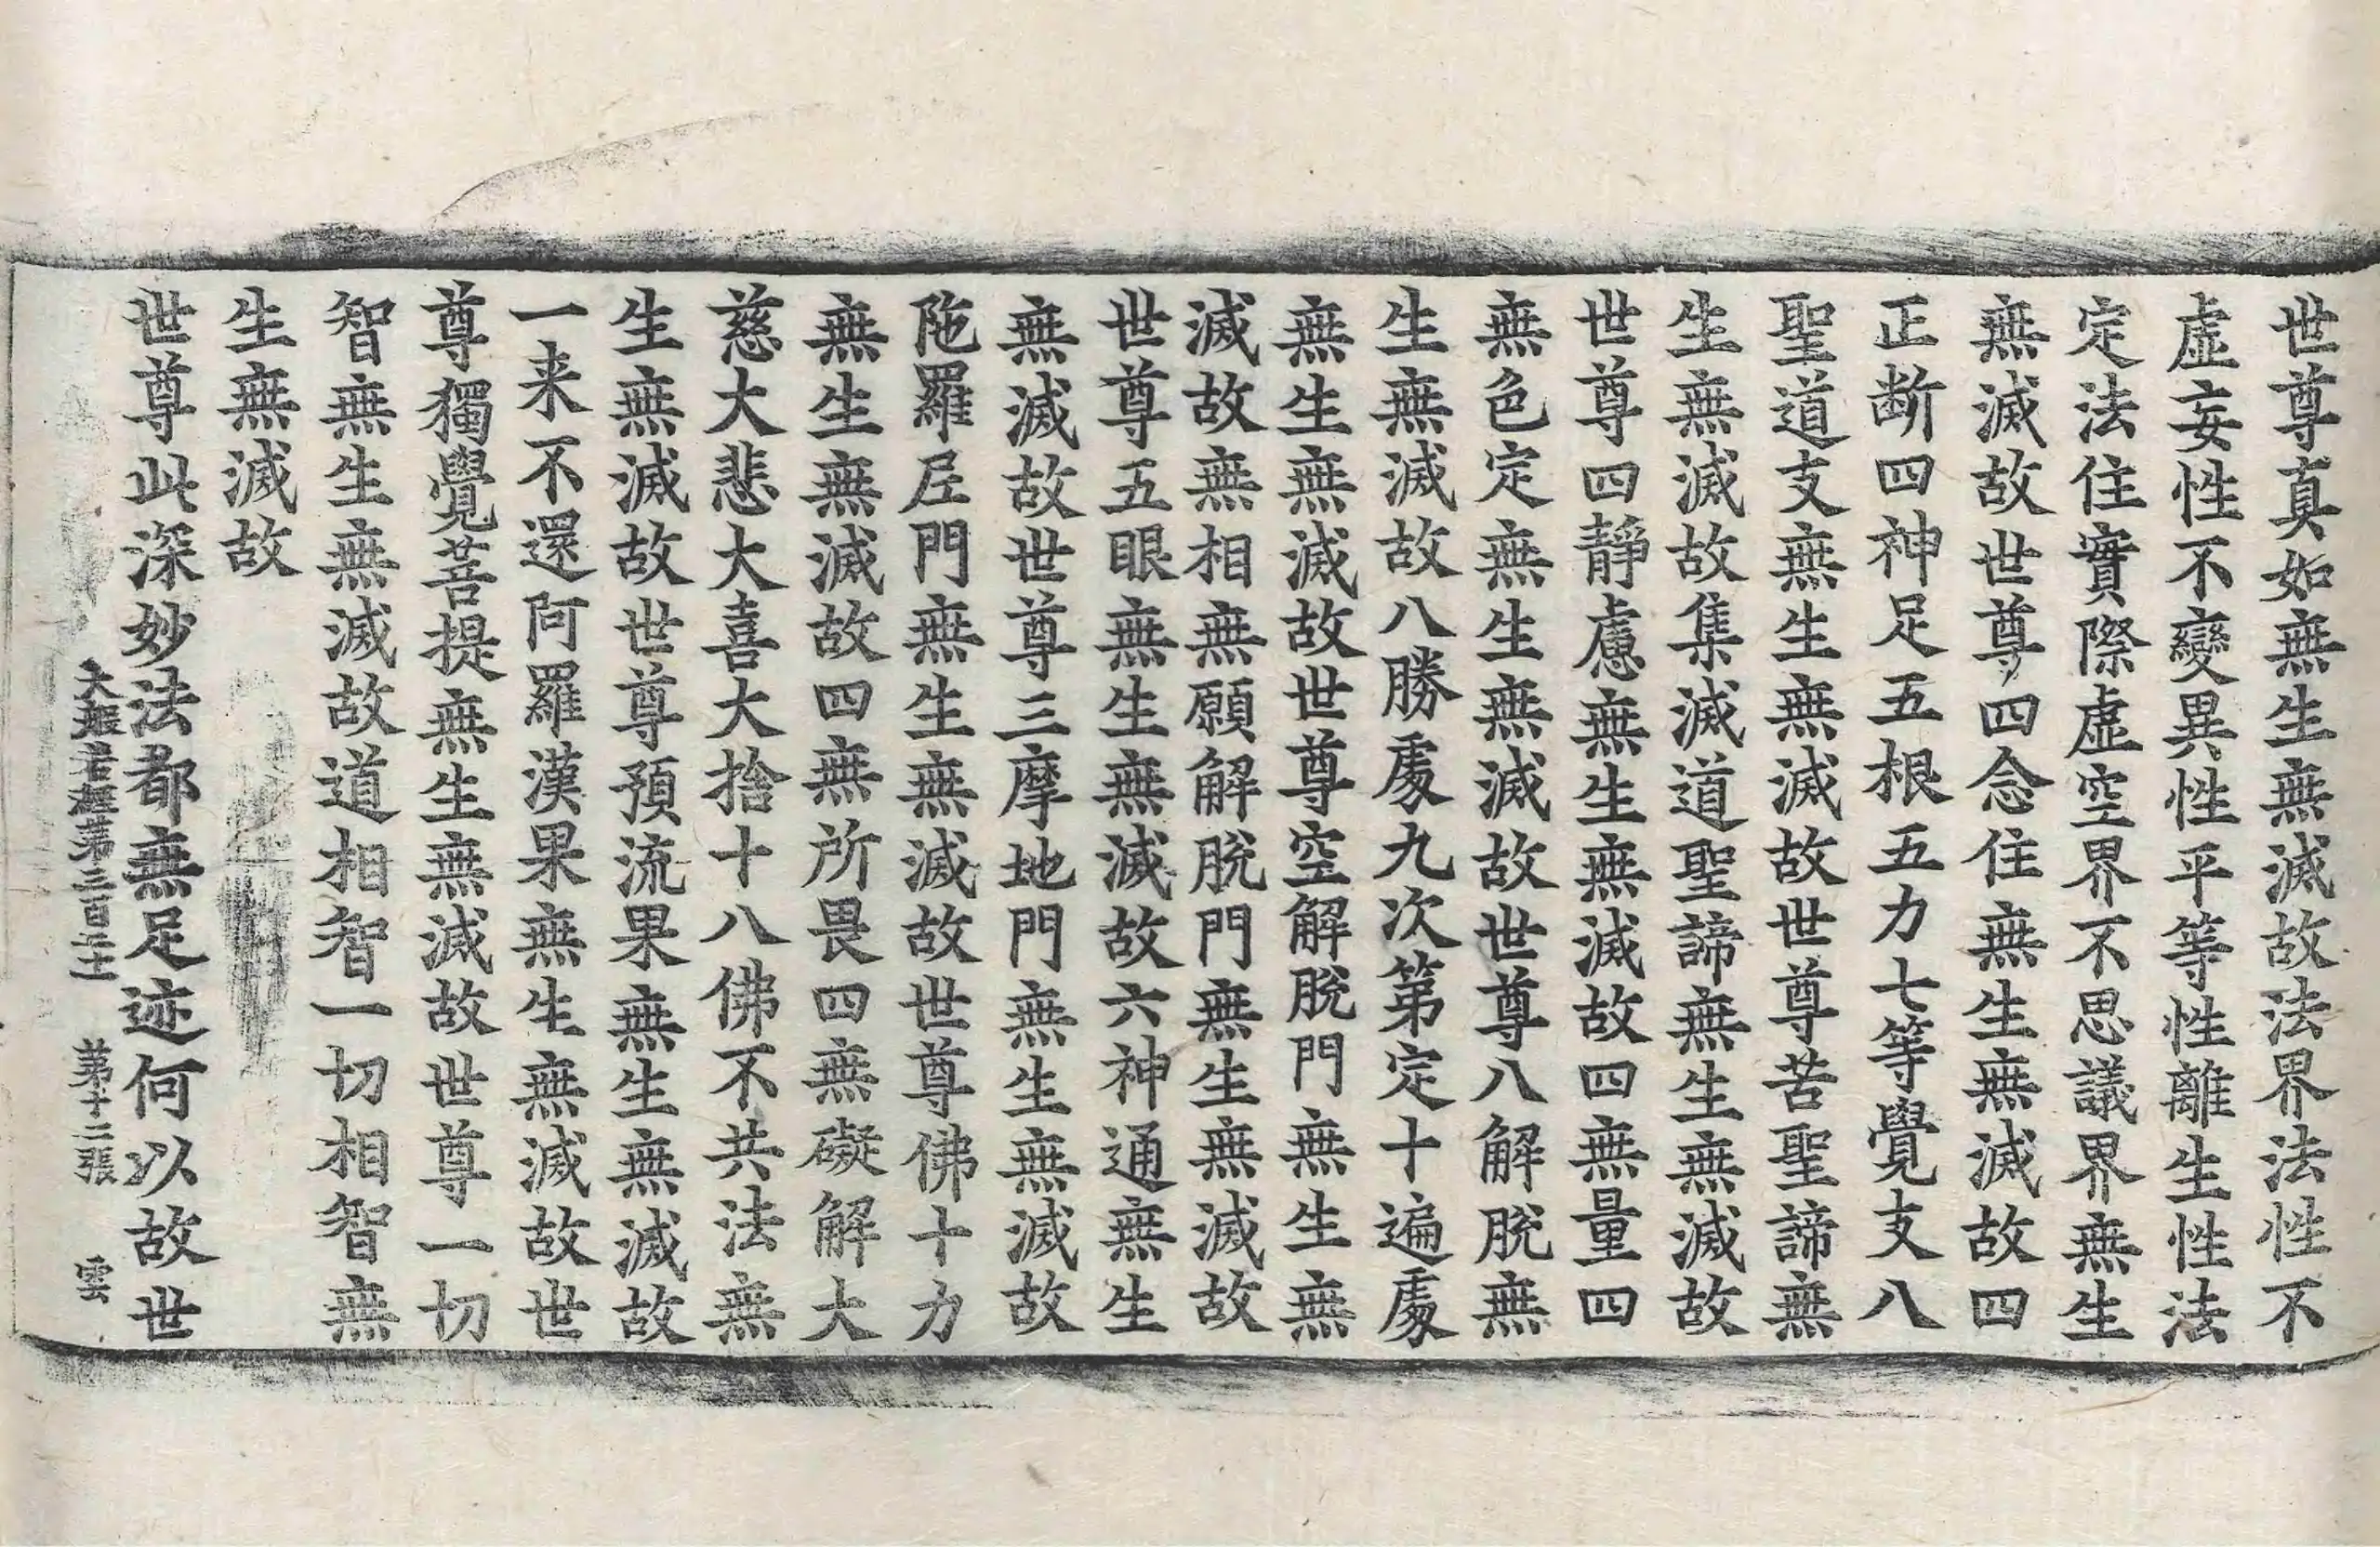 世尊真如無生無滅故法界法性不
虛妄性不變異性平等性離生性法
定法住實際虛空界不思議界無生
無滅故世尊四念住無生無滅故四
正断四神足五根五力七等覺支八
聖道支無生無滅故世尊苦聖諦無
生無滅故集滅道聖諦無生無滅故
世尊四靜慮無生無滅故四無量四
無色定無生無滅故世尊八解脫無
生無滅故八勝處九次第定十遍處
無生無滅故世尊空解脫門無生無
滅故無相無願解脫門無生無滅故
世尊五眼無生無滅故六神通無生
無滅故世尊三摩地門無生無滅故
陁羅尼門無生無滅故世尊佛十力
無生無滅故四無所畏四無礙解大
慈大悲大喜大捨十八佛不共法無
生無滅故世尊預流果無生無滅故
一来不還阿羅漢果無生無滅故世
尊獨覺菩提無生無滅故世尊一切
智無生無滅故道相智一切相智無
生無滅故
世尊此深妙法都無足迹何以故世
大般若經第三百 第十二張 雲